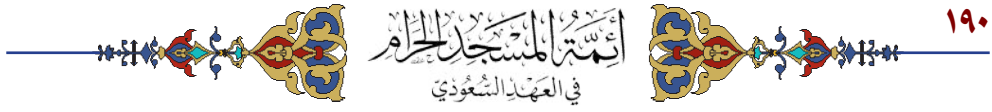 ١٩٠
أَئِمَّةُ المَسْجِدِ الحَرَامِ
فِي العَهْدِ السُّعُودِيّ